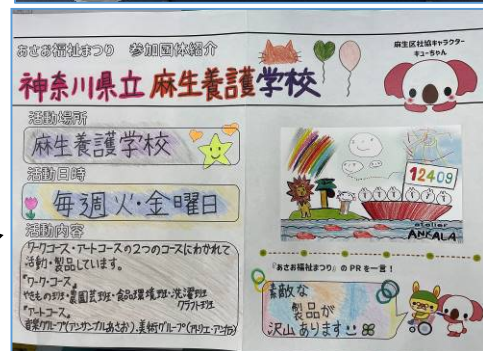 あさお福祉まつり 参加団体紹介
神奈川県立 麻生養護学校
活動場所
麻生養護学校
活動日時
毎週火・金曜日
活動内容
ワークコース・アートコースの2つのコースにわかれて
活動・製品しています。
『ワークコース』
やきもの班・農園芸班・食品環境班・洗濯班
クラフト班
『アートコース』
音楽グループ(アンサンブルあさお)、美術グループ(アトリエ・アンカラ)
麻生区社協キャラクター
キューちゃん
12409
atelier
ANKALA
『あさお福祉まつり』のPRを一言!
素敵な
製品が
沢山あります